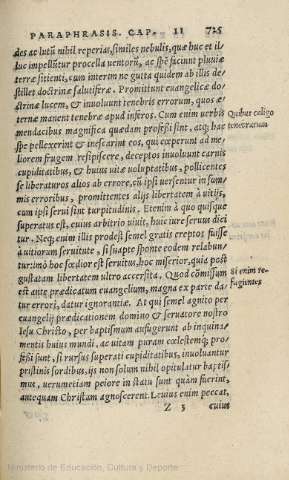 PARAPHRASIS. CAP. II 725
des ac lutũ nihil reperias, similes nebulis, quæ huc et il-
luc impelluntur procella ventorũ, ac spẽ faciunt pluuiæ
terræ sitienti, cum interim ne gutta quidem ab illis de-
stillet doctrinæ salutiferæ. Promittunt euangelicæ do-
ctrinæ lucem, & inuoluunt tenebris errorum, quos æ-
ternæ manent tenebræ apud inferos. Cum enim verbis
mendacibus magnifica quædam professi sint, atq; hac
spe pellexerint & inescarint eos, qui cœperunt ad me-
liorem frugem resipiscere, deceptos inuoluunt carnis
cupiditatibus, & huius vitæ voluptatibus, pollicentes
se liberaturos alios ab errore, cũ ipsi uersentur in sum/
mis erroribus, promittentes alijs libertatem à uitijs,
cum ipsi serui sint turpitudinis. Etenim à quo quisque
superatus est, cuius arbitrio viuit, huic iure seruus dici
tur. Neq; enim illis prodest semel gratis ereptos fuisse
à uitiorum seruitute, si suapte sponte eodem relabun/
tur: imò hoc fœdior est seruitus, hoc miserior, quia post
gustatam libertatem ultro accersita. Quod cõmissum
est ante prædicatum euangelium, magna ex parte da/
tur errori, datur ignorantiæ. At qui semel agnito per
euangelij prædicationem domino & seruatore nostro
Iesu Christo, per baptismum aufugerunt ab inquina-
mentis huius mundi, ac uitam puram cœlestemq; pro/
fessi sunt, si rursus superati cupiditatibus, inuoluantur
pristinis sordibus, ijs non solum nihil opitulatur baptis/
mus, uerumetiam peiore in statu sunt quàm fuerint,
antequam Christum agnoscerent. Leuius enim peccat,
Z 5 cuius
Quibus caligo
tenebrarum
Si enim re-
fugientes
Ministerio de Educación, Cultura y Deporte